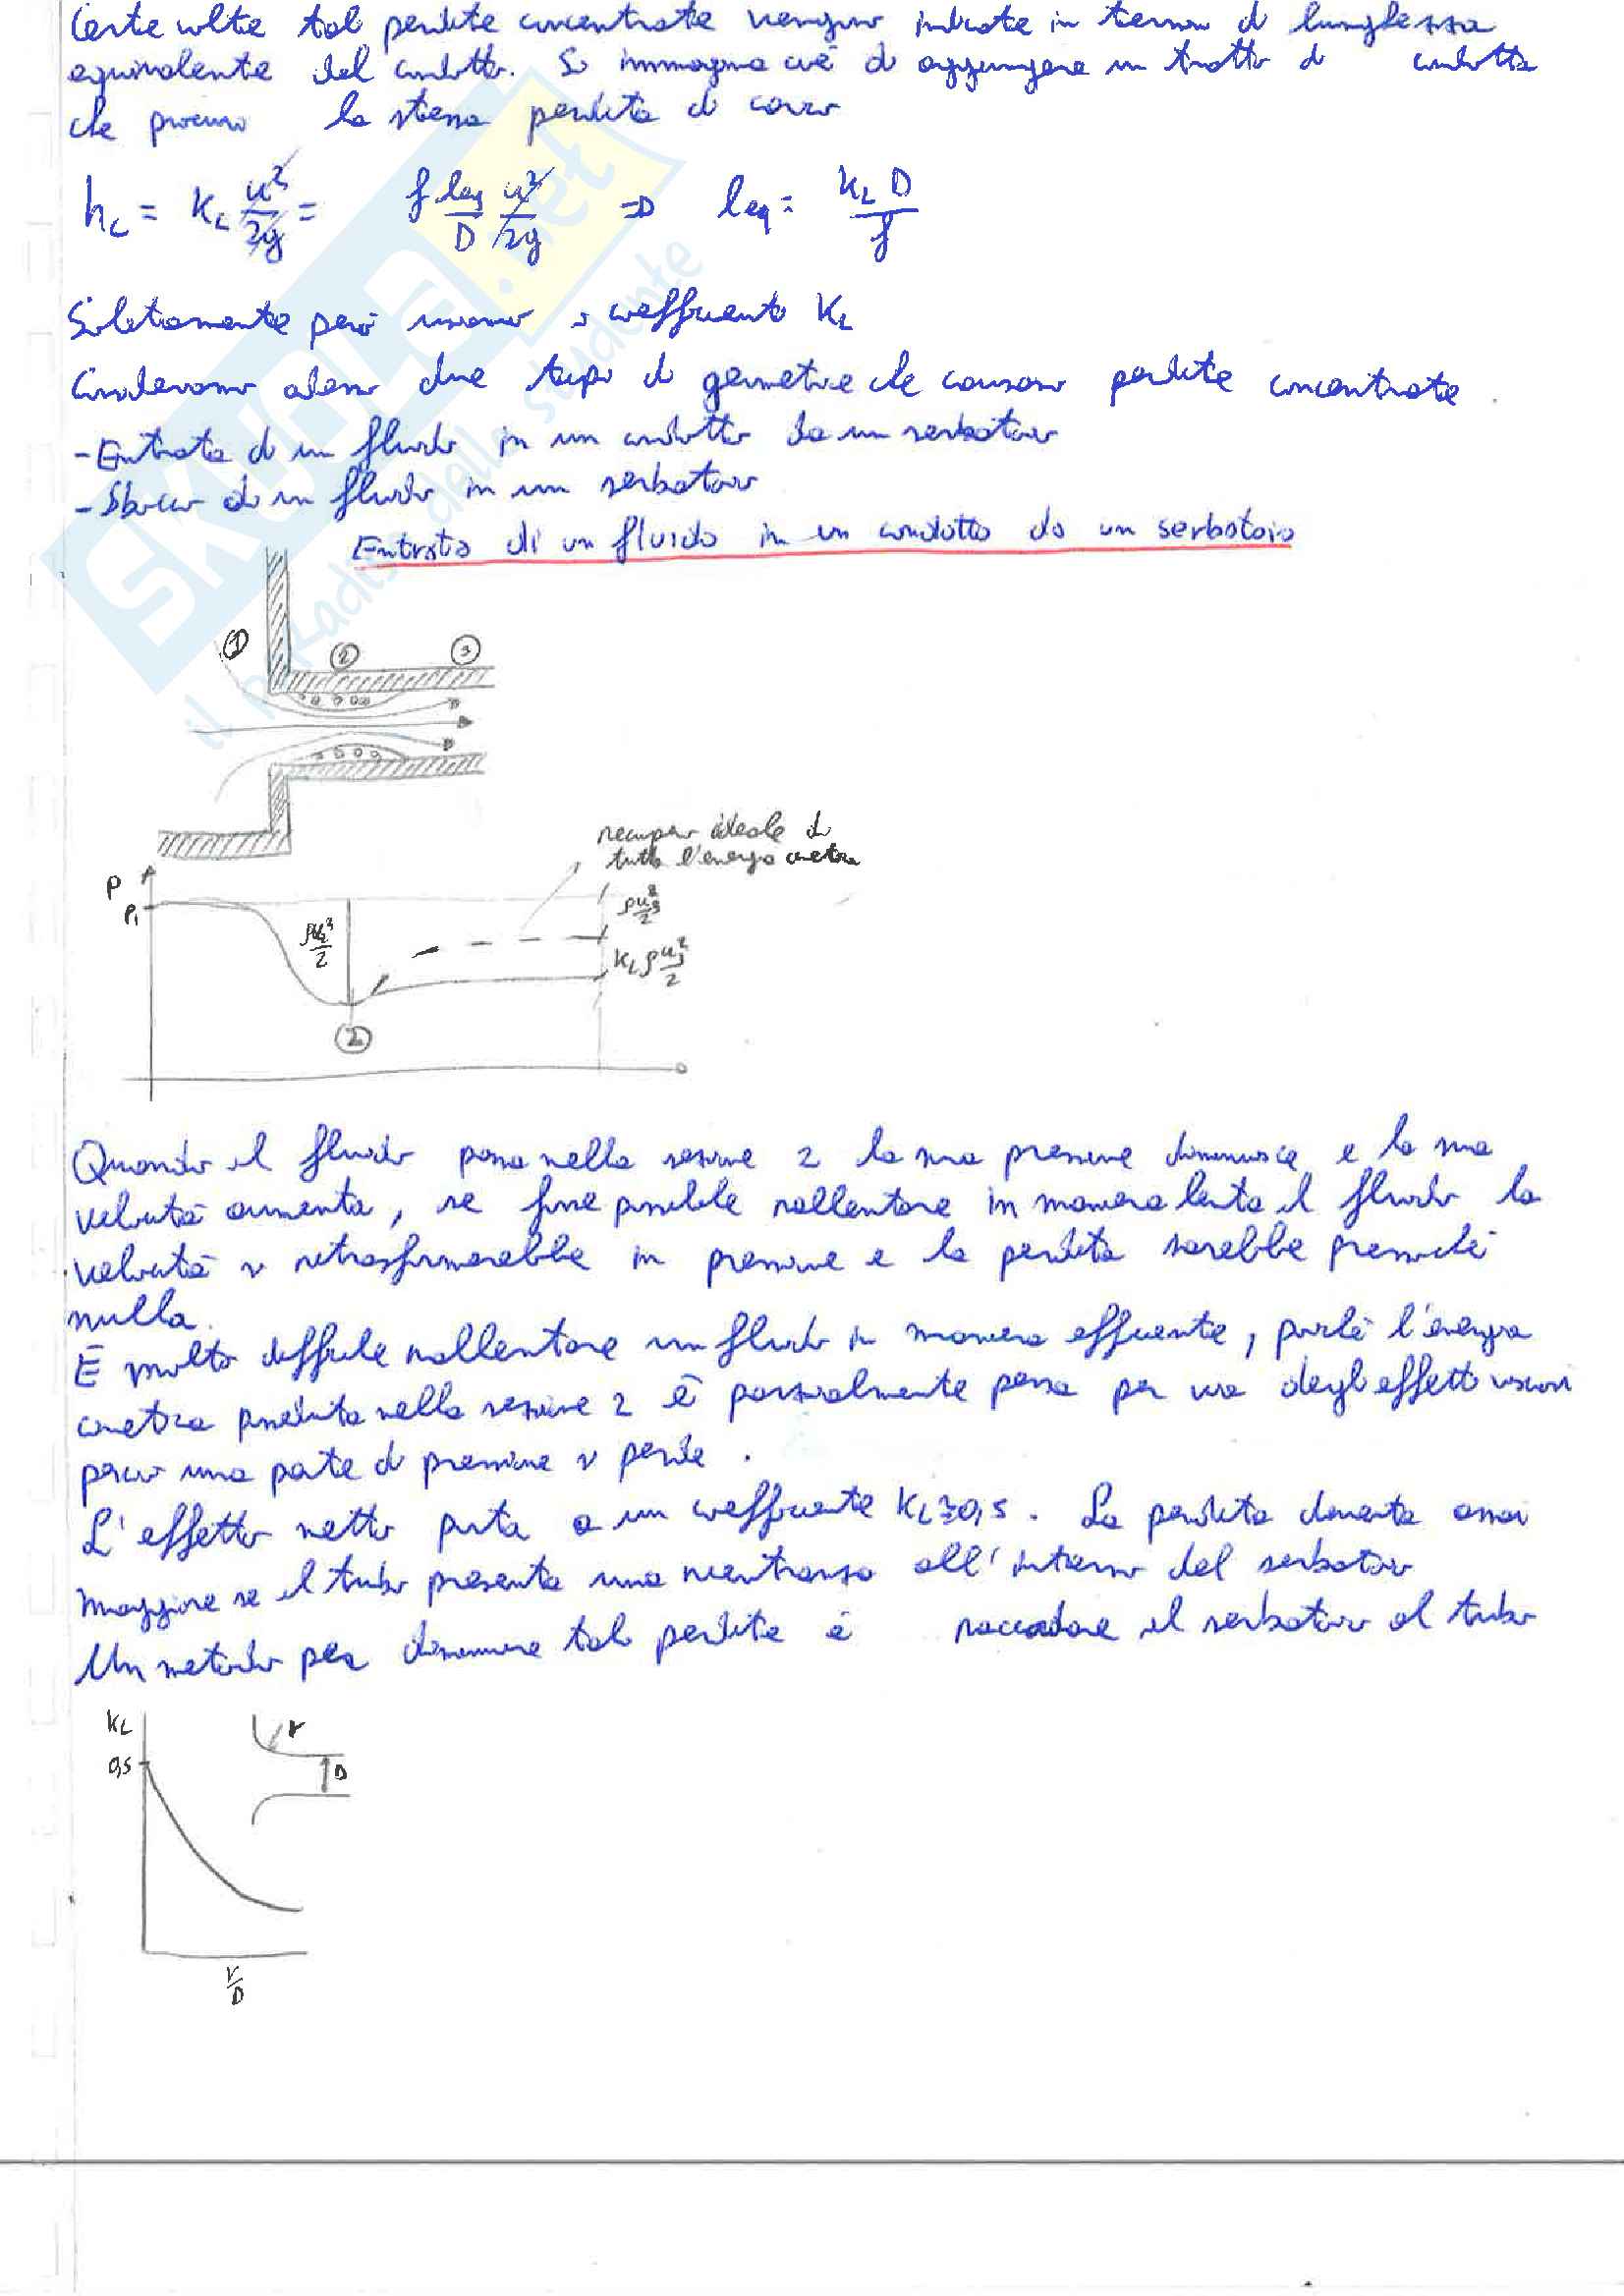 Certe volte tali perdite concentrate vengono indicate in termini di lunghezza
equivalente del condotto. Si immagina cioè di aggiungere un tratto di condotto
che provoca la stessa perdita di carico
h_L = K_L u²/2g = f leq/D u²/2g ⇒ leq = K_L D / f
Solitamente però usiamo i coefficienti K_L
Consideriamo adesso due tipi di geometrie che causano perdite concentrate.
- Entrata di un fluido in un condotto da un serbatoio
- Sbocco di un fluido in un serbatoio
Entrata di un fluido in un condotto da un serbatoio
① ② ③
recupero ideale di
tutta l'energia cinetica
P
P₁
ρu₂²/2
ρu₃²/2
K_L ρu₃²/2
②
Quando il fluido passa nella sezione 2 la sua pressione diminuisce e la sua
velocità aumenta, se fosse possibile rallentare in maniera lenta il fluido la
velocità si ritrasformerebbe in pressione e la perdita sarebbe pressoché
nulla.
È molto difficile rallentare un fluido in maniera efficiente, perché l'energia
cinetica posseduta nella sezione 2 è parzialmente persa per via degli effetti viscosi
perciò una parte di pressione si perde.
L'effetto netto porta a un coefficiente K_L ≃ 0,5. La perdita diventa assai
maggiore se il tubo presenta una rientranza all'interno del serbatoio
Un metodo per diminuire tali perdite è raccordare il serbatoio al tubo
K_L
0,5
r
D
r/D
SKUOLA.net
il paradiso dello studente